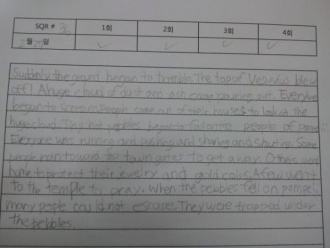 SQR # 3 1회 2회 3회 4회
월 일
Suddenly the ground began to tremble. The top of Vesuvius blew
off! A huge cloud of dust and ash came pouring out. Everyone
began to scream. People came out of their houses to look at the
huge cloud. Tiny hot pebbles began to fall onto people of Pompeii.
Everyone was running and pushing and shoving and shouting. Some
people ran toward the town gates to get away. Others went
home to protect their jewelry and gold coins. A few went
to the temple to pray. When the pebbles fell on Pompeii,
many people could not escape. They were trapped under
the pebbles.